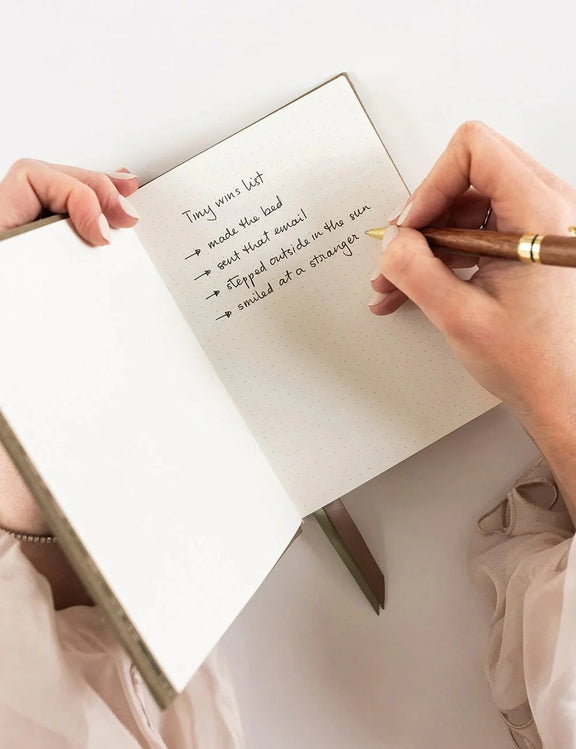 Tiny wins list
→ made the bed
→ sent that email
→ stepped outside in the sun
→ smiled at a stranger